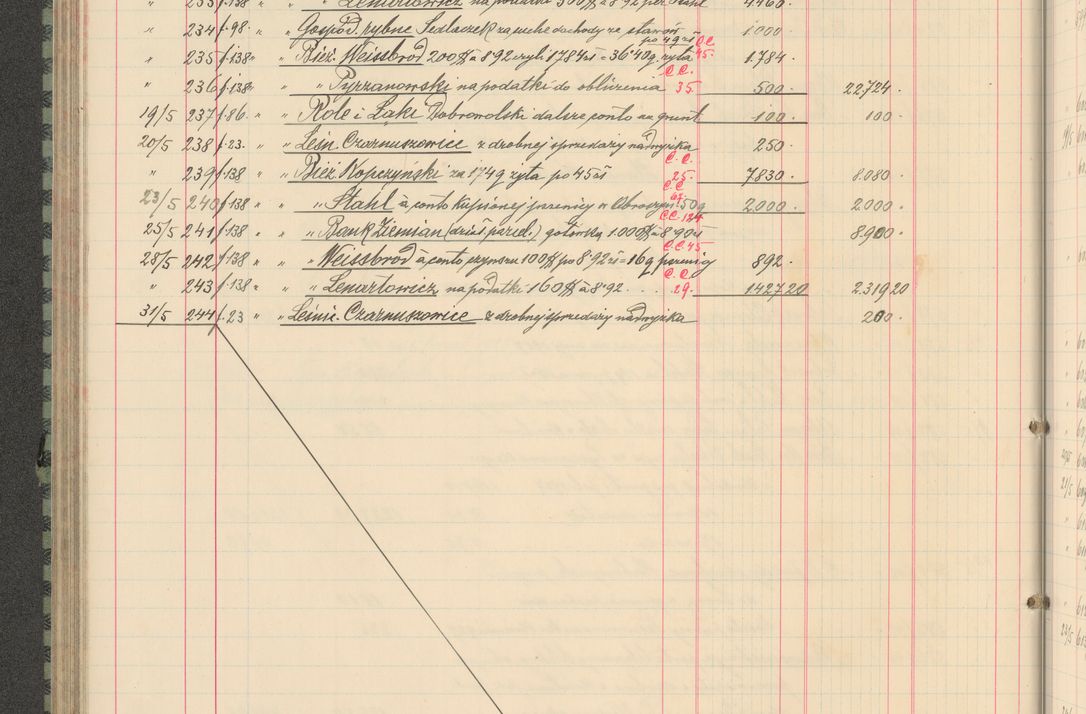 " 233 f.138 " " " Lenartowicz na podatki 500 $ à 8'92 per Stahl 4460.
" 234 f.98. " " Gospod. rybne Sedlaczek za suche dochody ze stawów 1000.
po 49 zł C.C.
" 235 f.138 " " Bież. Weissbrod 200 $ à 8'92 czyli 1784 zł = 36'40 q. żyta 45. 1.784.
C.C.
" 236 f.138 " " " Pyrzanowski na podatki do obliczenia 35. 500. 22724.
19/5 237 f.86. " " Role i Łąki Dobrowolski dalsze conto za grunt 100. 100.
20/5 238 f.23. " " Leśn. Czarnuszowice z drobnej sprzedaży nadwyżka 250.
C.C.
" 239 f.138 " " Bież Kopczyński za 174 q żyta po 45 zł 25. 7830. 8.080.
C.C.
23/5 240 f.138 " " " Stahl à conto kupionej pszenicy w 50 q 2.000. 2.000.
C.C. 124
25/5 241 f.138 " " " Bank Ziemian gotówką 1.000 $ à 8'90 zł 8.900.
C.C. 45
28/5 242 f.138 " " " Weissbrod à conto czynszu 100 $ po 8'92 zł = 16 q pszenicy 892.
C.C.
" 243 f.138. " " " Lenartowicz na podatki 160 $ à 8'92 . . . 29. 1427 20 2.319 20
31/5 244 f.23 " " Leśnic. Czarnuszowice z drobnej sprzedaży nadwyżka 200.